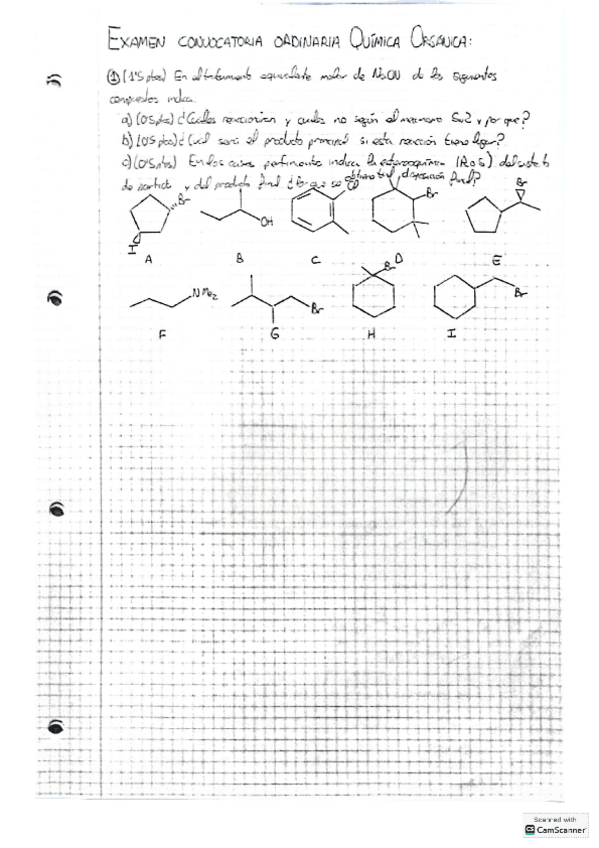 EXAMEN CONVOCATORIA ORDINARIA QUÍMICA ORGÁNICA:
① (1'5 ptos) En el tratamiento equivalente molar de NaCN de los siguientes
compuestos indica:
a) (0'5 ptos) ¿Cuáles reaccionan y cuales no según el mecanismo SN2 y por que?
b) (0'5 ptos) ¿Cual será el producto principal si esta reacción tiene lugar?
c) (0'5 ptos) En los casos pertinentes indica la estereoquímica (R o S) del
de partida y del producto final ¿Por que se obtiene tal disposición final?
Br
OH
Cl
Br
Br
I
A
B
C
D
E
NMe2
Br
Br
Br
F
G
H
I
Scanned with
CamScanner